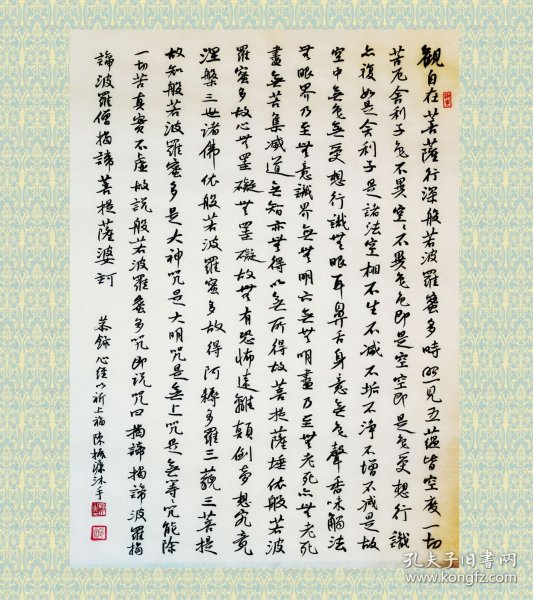 觀自在菩薩行深般若波羅蜜多時照見五蘊皆空度一切
苦厄舍利子色不異空空不異色色即是空空即是色受想行識
亦復如是舍利子是諸法空相不生不滅不垢不淨不增不減是故
空中無色無受想行識無眼耳鼻舌身意無色聲香味觸法
無眼界乃至無意識界無無明亦無無明盡乃至無老死亦無老死
盡無苦集滅道無智亦無得以無所得故菩提薩埵依般若波
羅蜜多故心無罣礙無罣礙故無有恐怖遠離顛倒夢想究竟
涅槃三世諸佛依般若波羅蜜多故得阿耨多羅三藐三菩提
故知般若波羅蜜多是大神咒是大明咒是無上咒是無等咒能除
一切苦真實不虛故説般若波羅蜜多咒即説咒曰揭諦揭諦波羅揭
諦波羅僧揭諦菩提薩婆訶
恭錄心經以祈上福 陳振濂沐手
孔夫子旧书网
www.kongfz.com